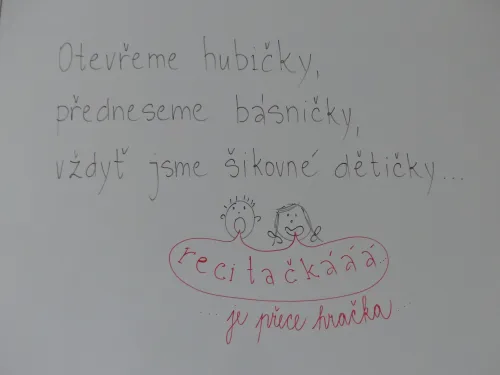 Otevřeme hubičky,
předneseme básničky,
vždyť jsme šikovné dětičky...
recitačkááá...
...je přece hračka...